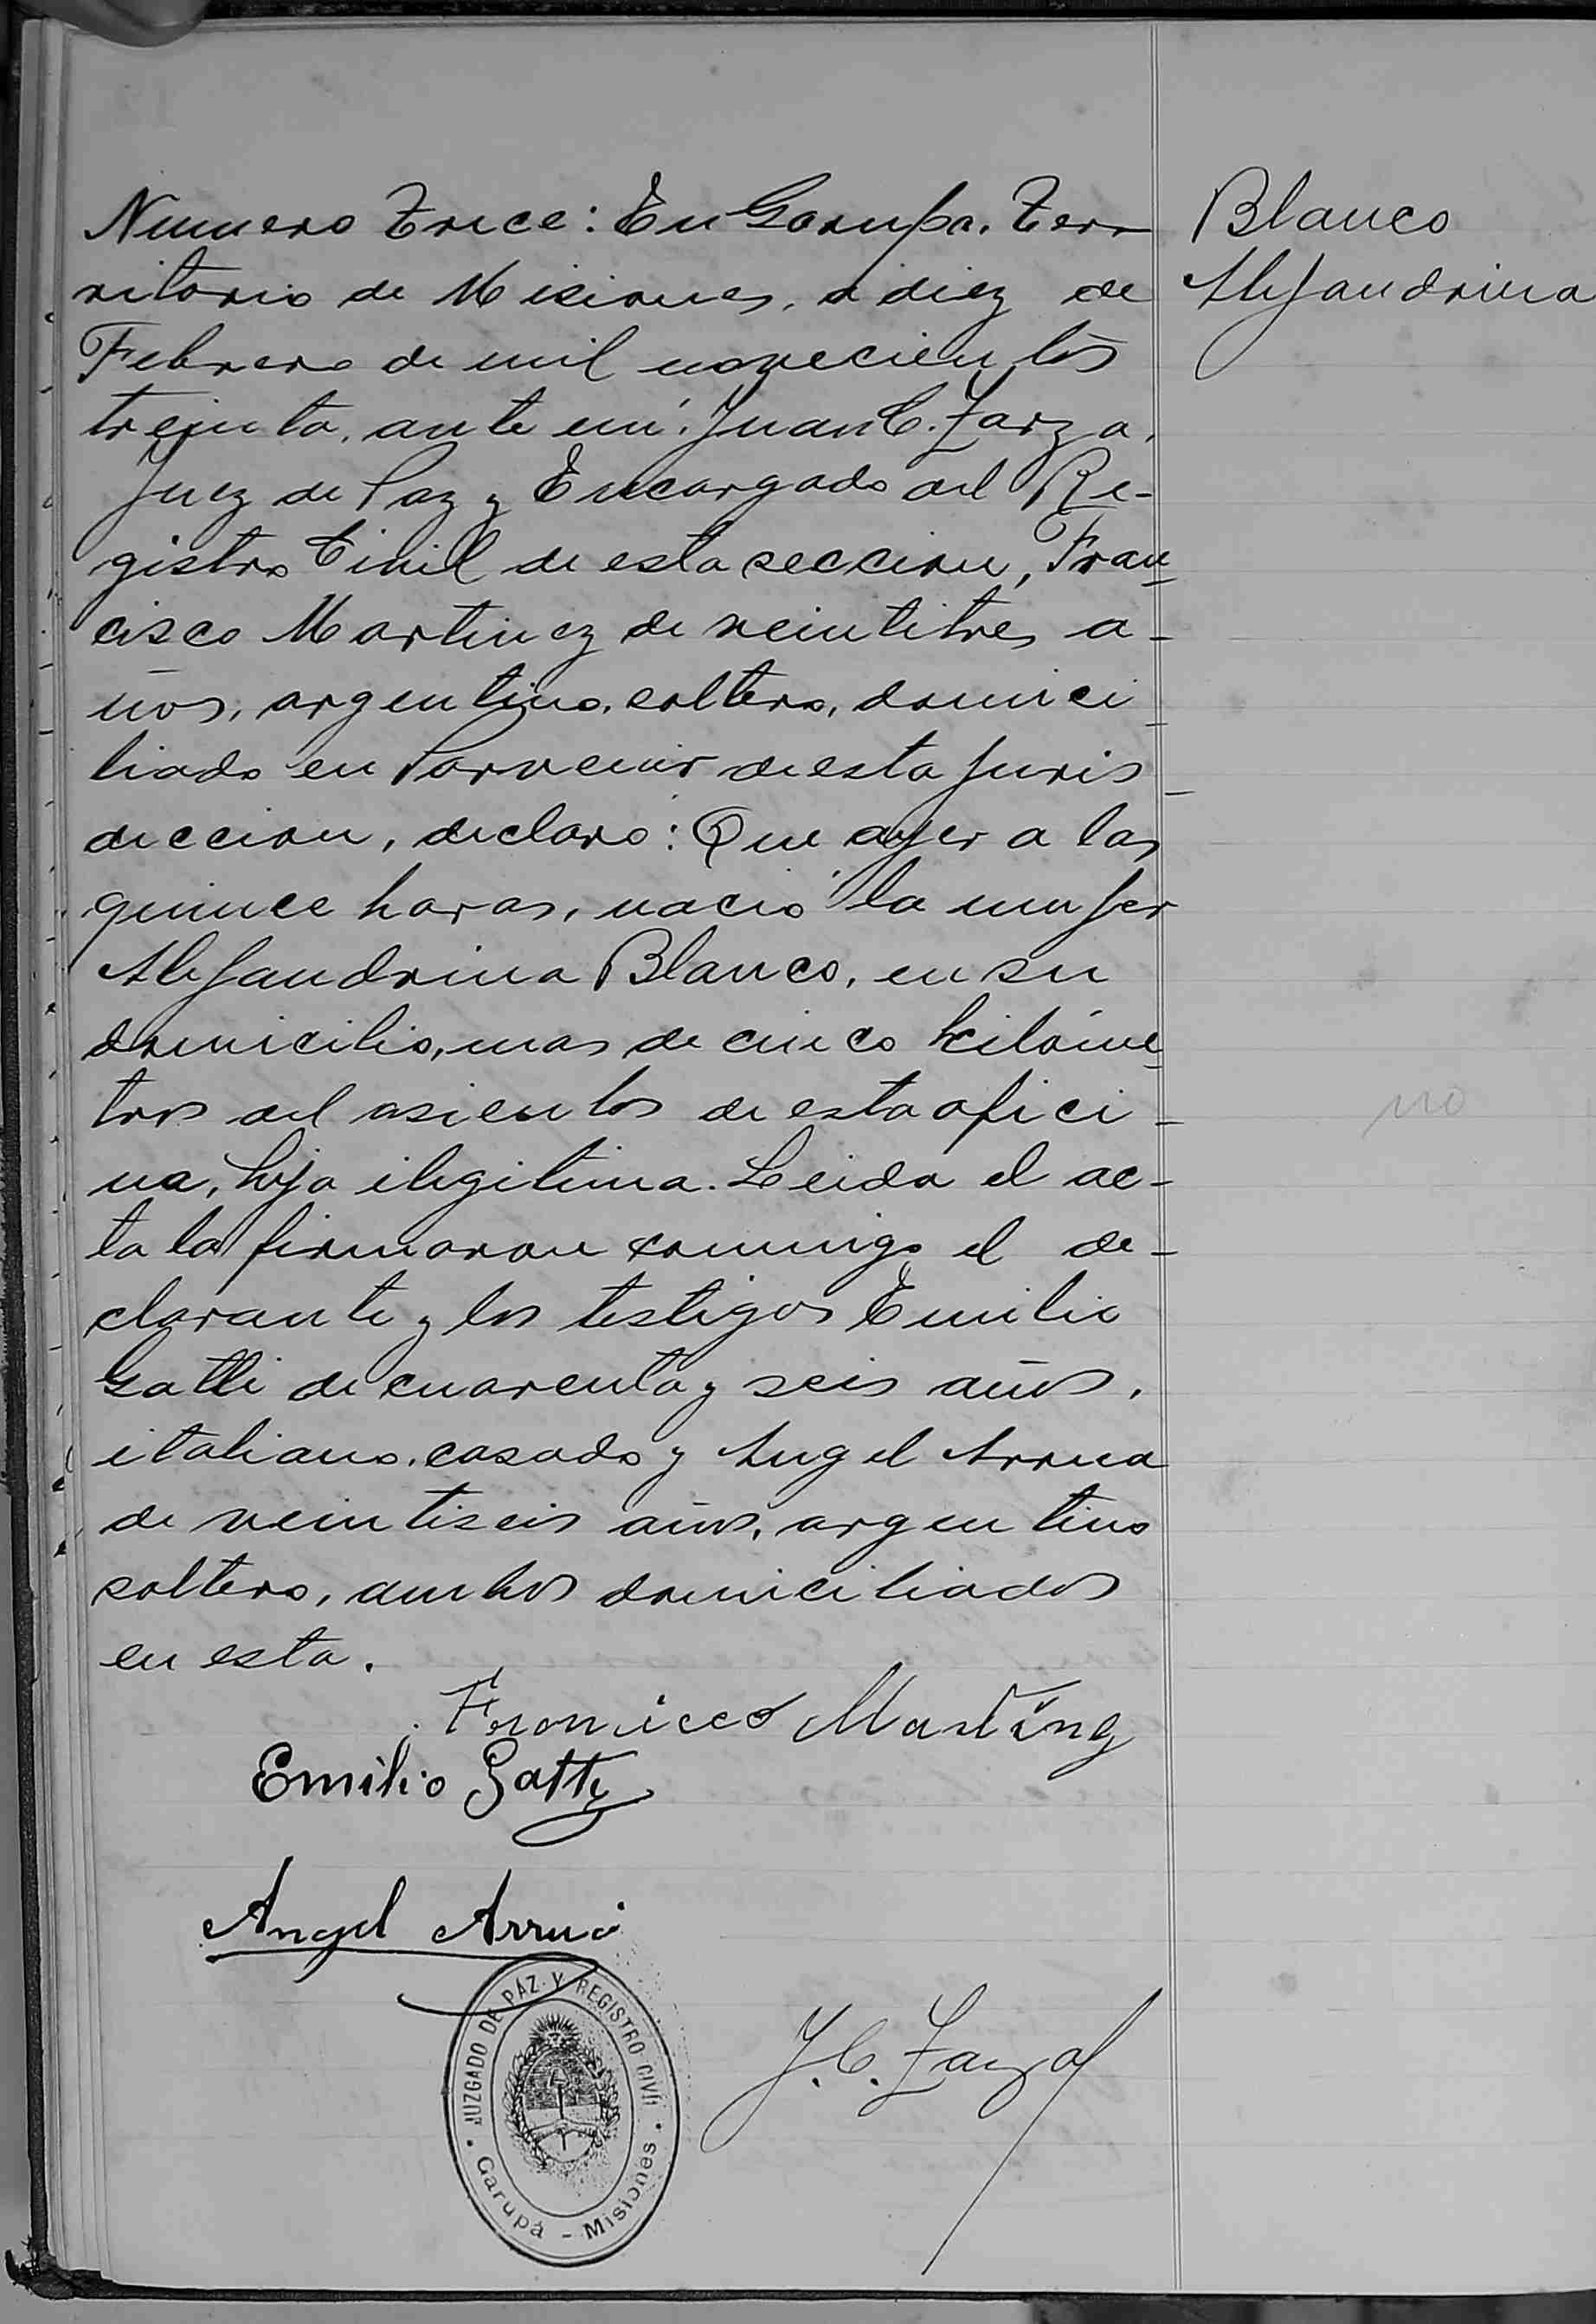 Numero Trece: En Garupa. Terr
ritorio de Misiones, a diez de
Febrero de mil novecientos
treinta, ante mi: Juan C. Zarza.
Juez de Paz y Encargado del Re-
gistro Civil de esta seccion, Fran-
cisco Martinez de veintitres a-
ños, argentino, soltero, domici-
liado en Porvenir de esta juris-
diccion, declaró: Que ayer a las
quince horas, nació la mujer
Alejandrina Blanco, en su
domicilio, mas de cinco kilóme-
tros del asientos de esta ofici-
na, hija ilegitima. Leida el ac-
ta la firmaron conmigo el de-
clarante y los testigos Emilio
Gatti de cuarenta y seis años,
italiano, casado y Angel Arrua
de veintiseis años, argentino
soltero, ambos domiciliados
en esta.
Blanco
Alejandrina
no
Martinez
Emilio Gatty
Angel Arrua
J. C. Zarza
JUZGADO DE PAZ Y REGISTRO CIVIL
Garupá - Misiones